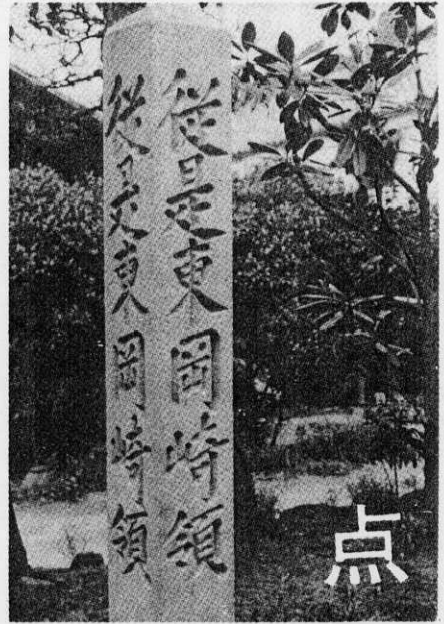 従是東岡崎領
従是東岡崎領
点